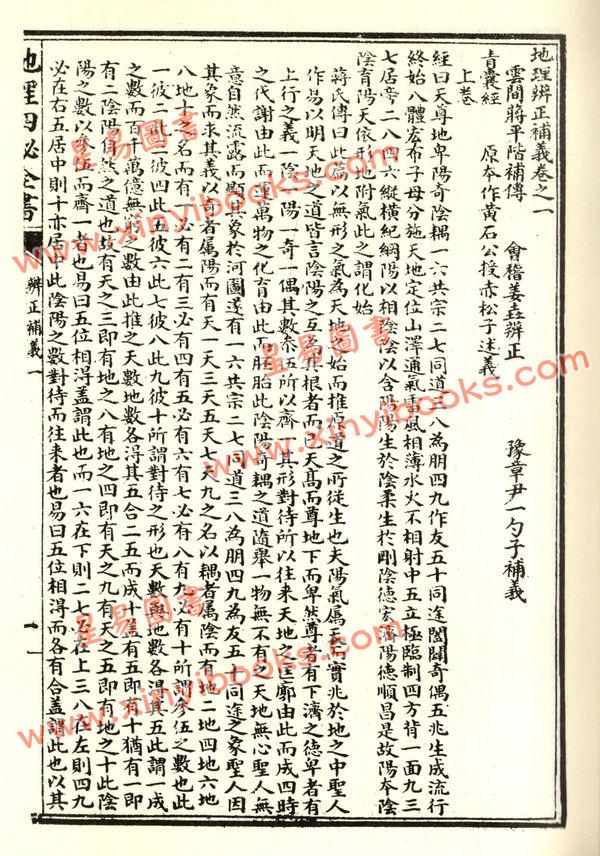 地理辨正補義卷之一
雲間蔣平階補傳　會稽姜垚辨正　豫章尹一勺子補義
青囊經　原本作黃石公授赤松子述義
上卷
經曰天尊地卑陽奇陰耦一六共宗二七同道三八為朋四九作友五十同途闔闢奇偶五兆生成流行
終始八體宏布子母分施天地定位山澤通氣雷風相薄水火不相射中五立極臨制四方背一面九三
七居旁二八四六縱橫紀綱陽以相陰陰以含陽陽生於陰柔生於剛陰德宏濟陽德順昌是故陽本陰
陰育陽天依形地附氣此之謂化始
蔣氏傳曰此篇以無形之氣為天地之始而推原道之所從生也夫陽氣屬天而實兆於地之中聖人
作易以明天地之道皆言陰陽之互為其根者而已天高而尊地下而卑然尊者有下濟之德卑者有
上行之義一陰一陽一奇一偶其數參伍所以齊一其形對待所以往來天地之匡廓由此而成四時
之代謝由此而運萬物之化育由此而胚胎此陰陽奇耦之道隨舉一物無不有之天地無心聖人無
意自然流露而顯其象於河圖遂有一六共宗二七同道三八為朋四九為友五十同途之象聖人因
其象而求其義以奇者屬陽而有天一天三天五天七天九之名以耦者屬陰而有地二地四地六地
八地十之名而有一必有二有三必有四有五必有六有七必有八有九必有十所謂參伍之數也此
一彼二此三彼四此五彼六此七彼八此九彼十所謂對待之形也天數與地數各得其五此謂一成
之數而百千萬億無窮之數由此推之天數地數各得其五合二五而成十蓋有五即有十猶有一即
有二陰陽自然之道也故有天之三即有地之八有地之四即有天之九有天之五即有地之十此陰
陽之數以參伍而齊一者也易曰五位相得蓋謂此也而一六在下則二七必在上三八在左則四九
必在右五居中則十亦居中此陰陽之數對待而往來者也易曰五位相得而各有合蓋謂此也以其
地理四必全書
辨正補義一
一
星易圖書
www.xinyibooks.com
星易圖書
www.xinyibooks.com
星易圖書
www.xinyibooks.com